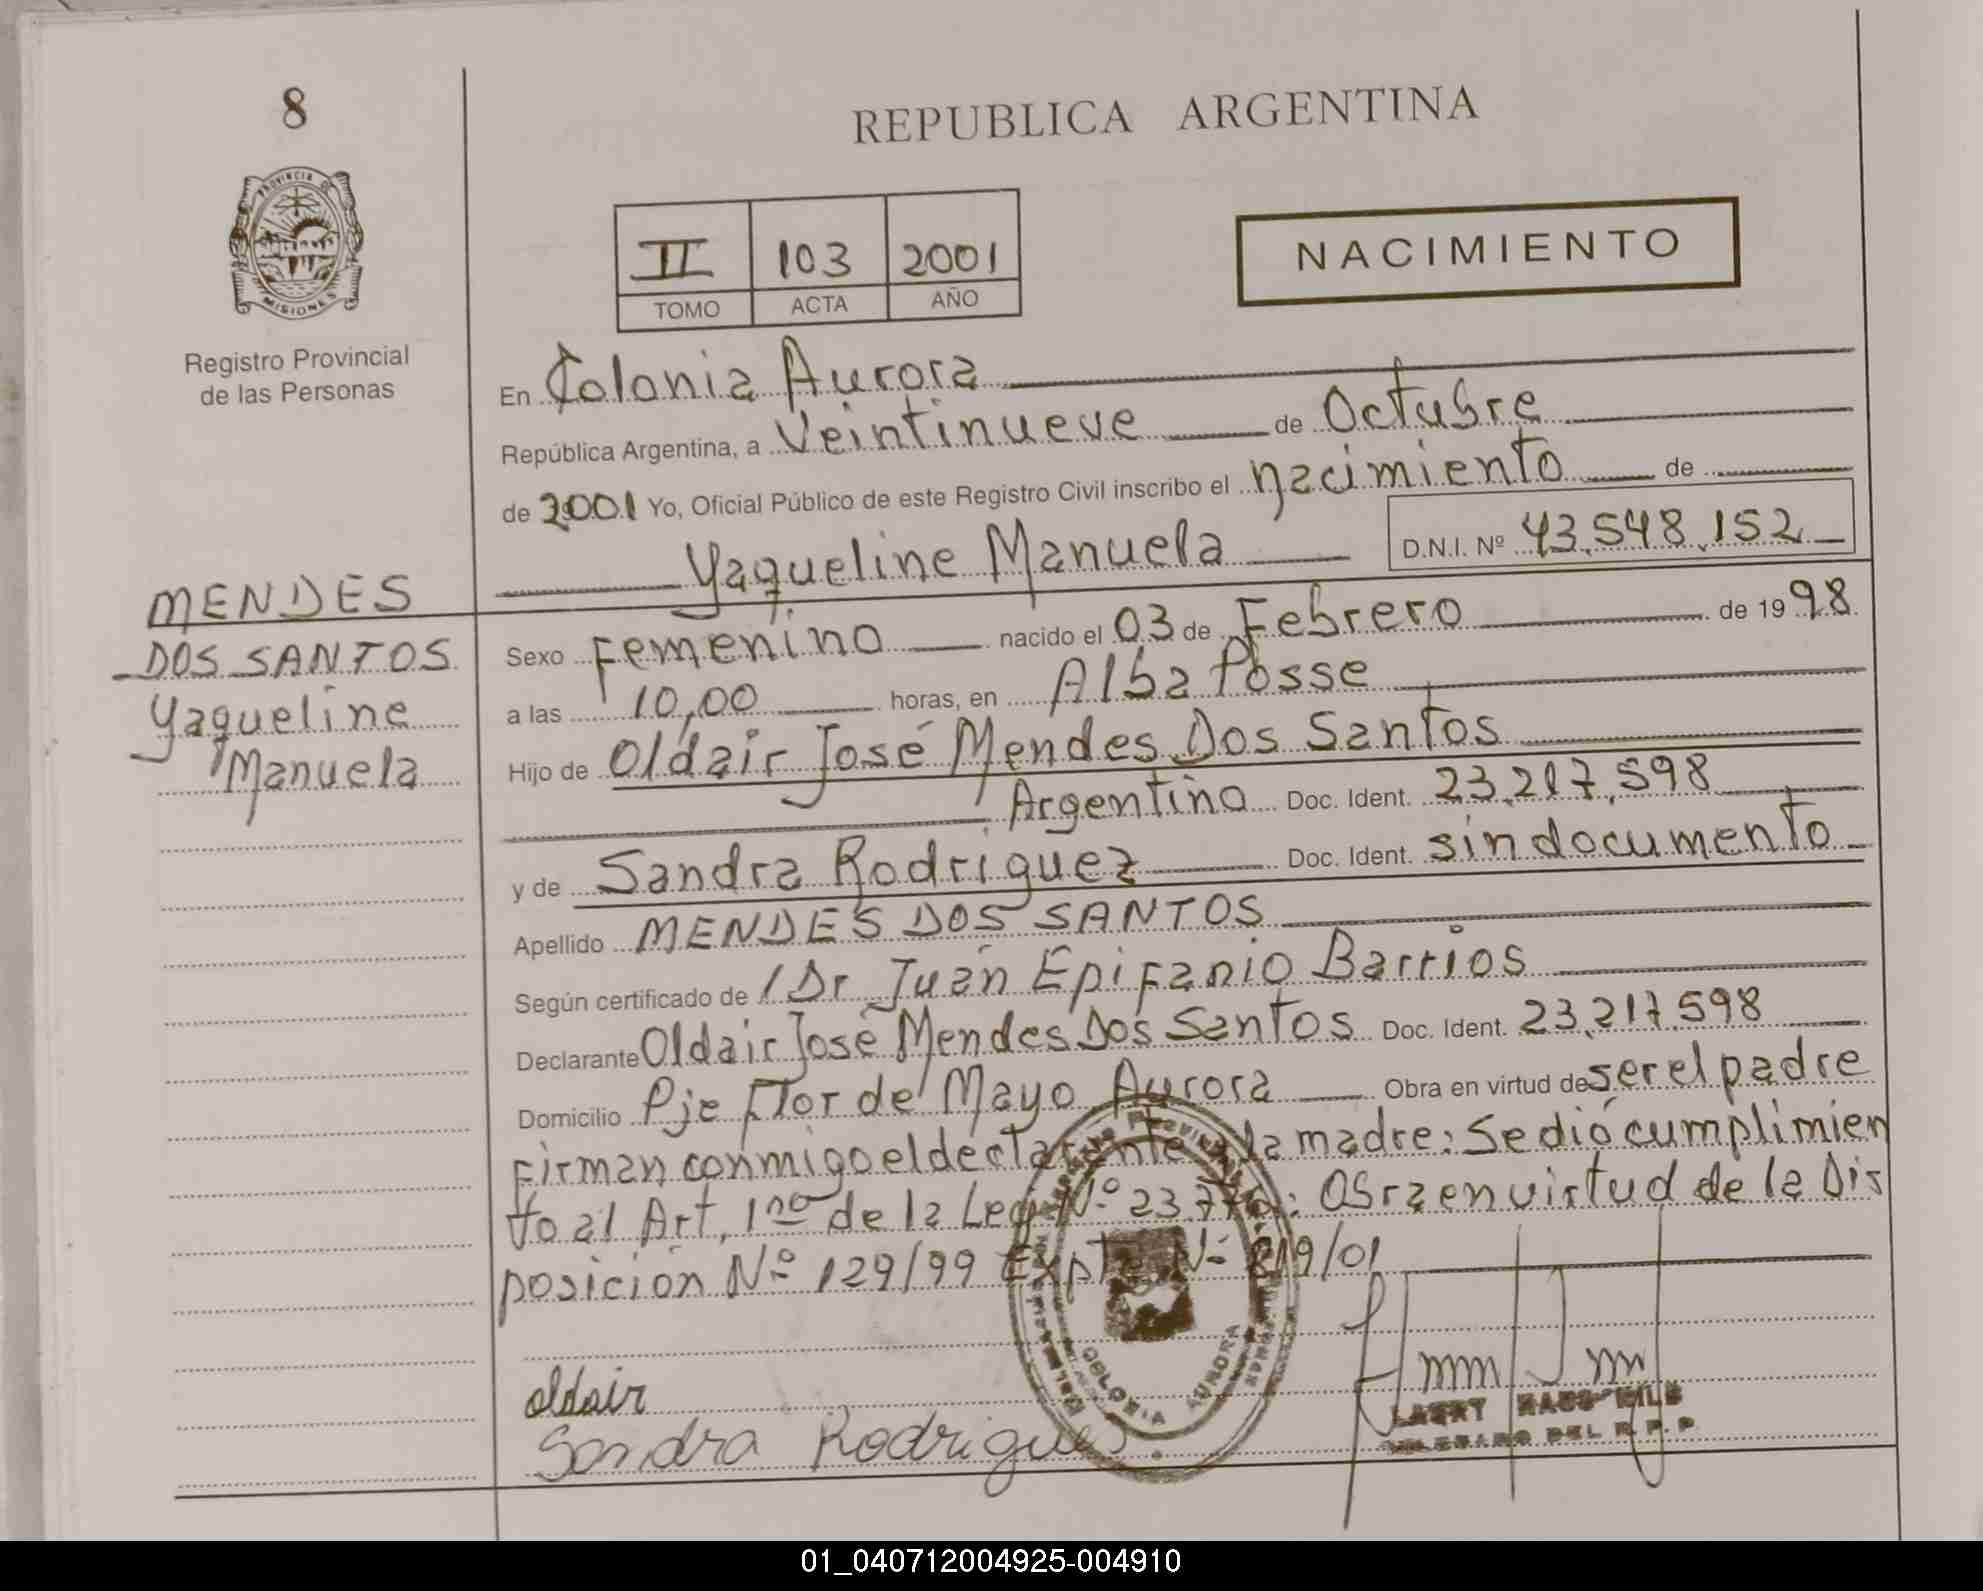 8
REPUBLICA ARGENTINA
PROVINCIA DE
MISIONES
Registro Provincial
de las Personas
II 103 2001
TOMO ACTA AÑO
NACIMIENTO
En Colonia Aurora
República Argentina, a Veintinueve de Octubre
de 2001 Yo, Oficial Público de este Registro Civil inscribo el nacimiento de
Yaqueline Manuela D.N.I. Nº 43.548.152
MENDES
DOS SANTOS
Yaqueline
Manuela
Sexo Femenino nacido el 03 de Febrero de 1998
a las 10,00 horas, en Alba Posse
Hijo de Oldair José Mendes Dos Santos
Argentino Doc. Ident. 23.217.598
y de Sandra Rodriguez Doc. Ident. sin documento
Apellido MENDES DOS SANTOS
Según certificado de / Dr Juan Epifanio Barrios
Declarante Oldair José Mendes Dos Santos Doc. Ident. 23.217.598
Domicilio Pje Flor de Mayo Aurora Obra en virtud de ser el padre
Firman conmigo el declarante y la madre: Se dió cumplimien
to al Art. 1ro de la Ley Nº 23.776: Obra en virtud de la Dis
posición Nº 129/99 Expte Nº 219/01
COLONIA AURORA
oldair
Sandra Rodrigues
DEL R.P.P.
01_040712004925-004910